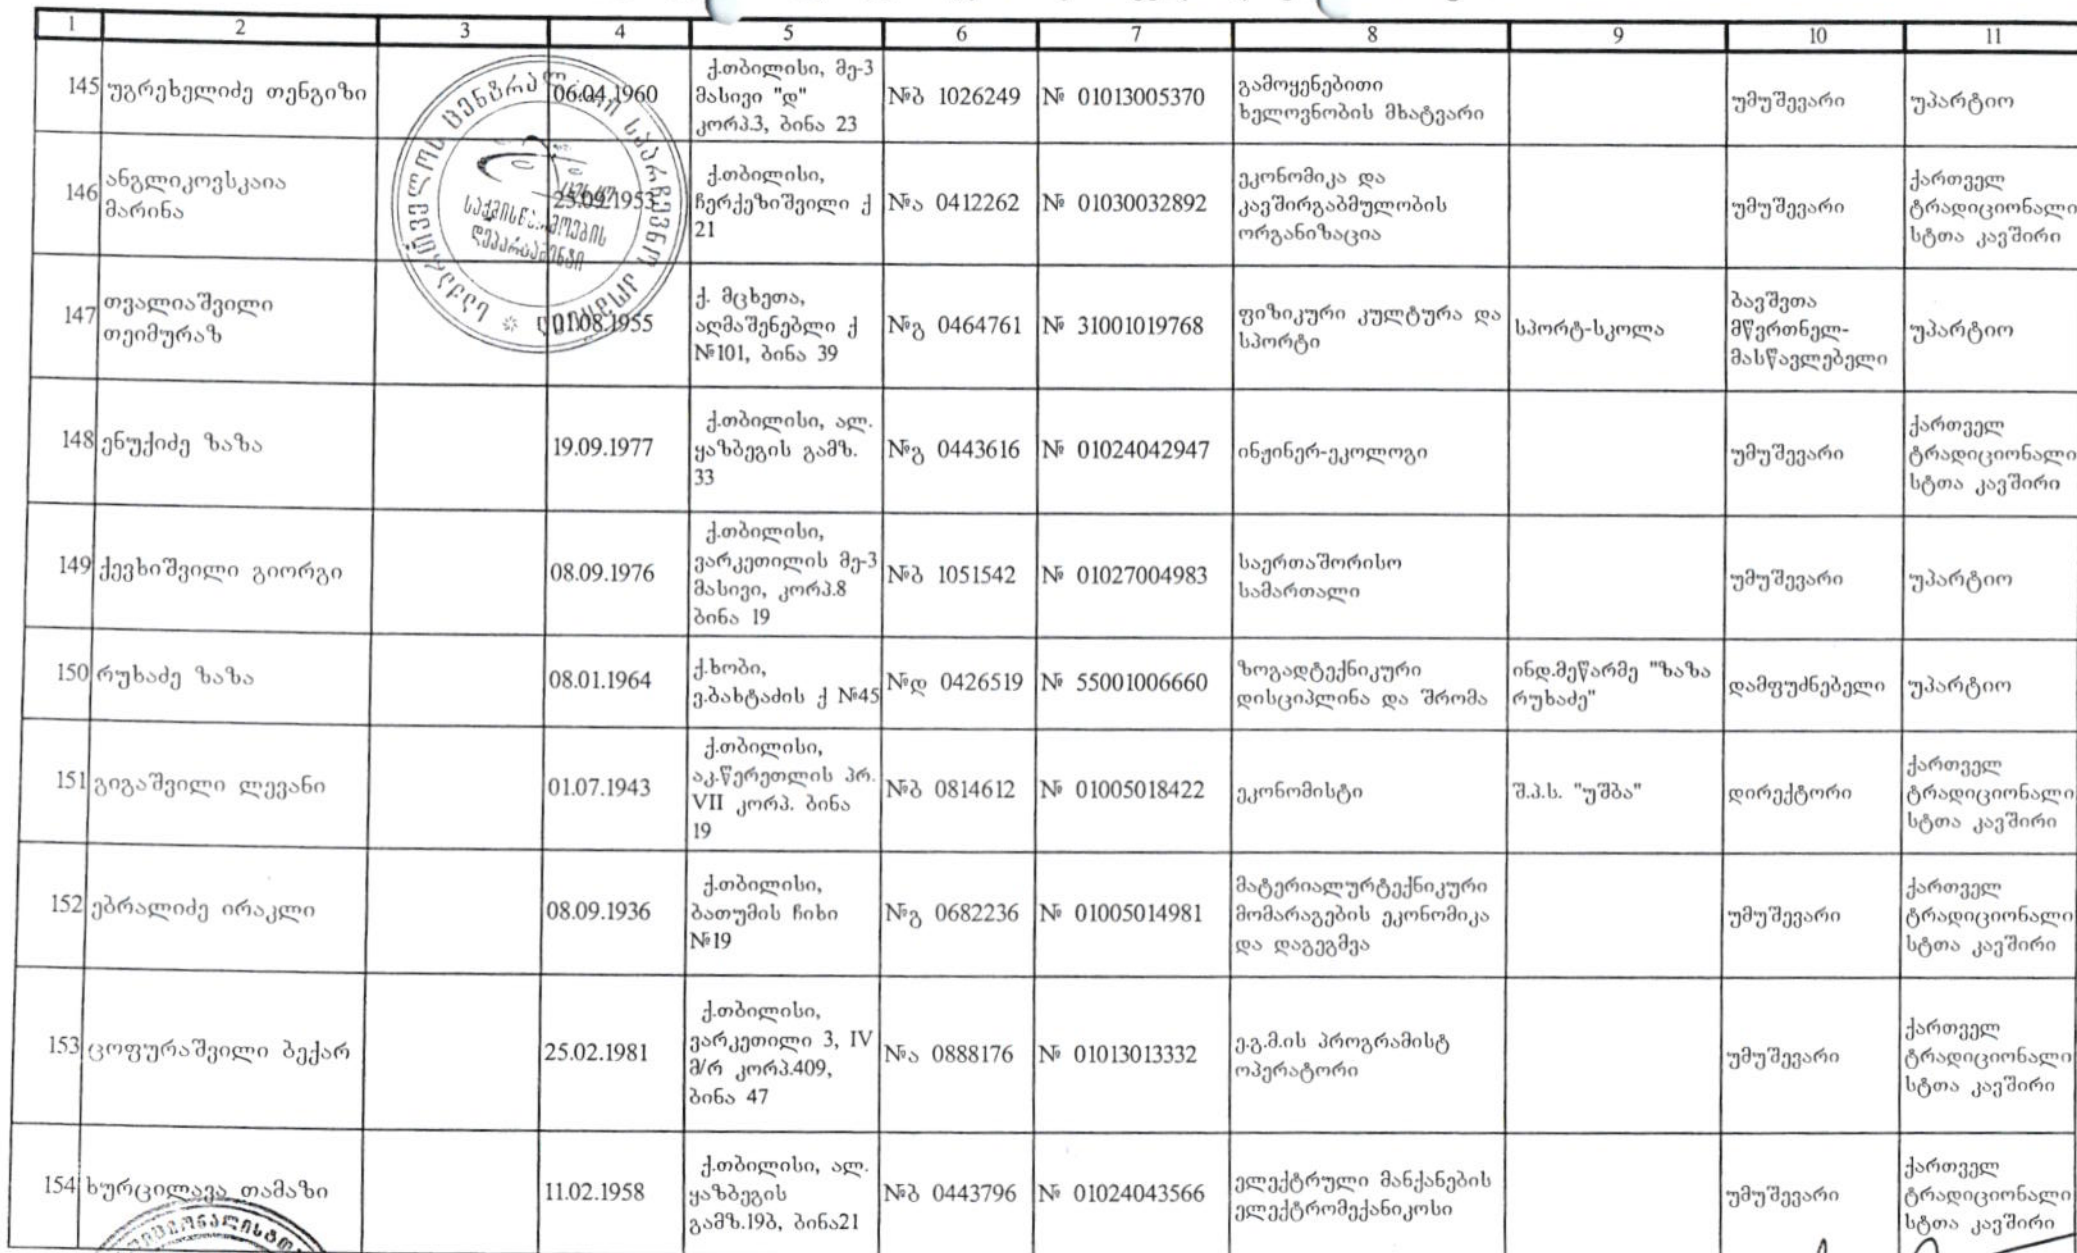 1 2 3 4 5 6 7 8 9 10 11
145 უგრეხელიძე თენგიზი 06.04.1960 ქ.თბილისი, მე-3 მასივი "დ" კორპ.3, ბინა 23 №ბ 1026249 № 01013005370 გამოყენებითი ხელოვნობის მხატვარი უმუშევარი უპარტიო
146 ანგლიკოვსკაია მარინა 25.09.1953 ქ.თბილისი, ჩერქეზიშვილი ქ 21 №ა 0412262 № 01030032892 ეკონომიკა და კავშირგაბმულობის ორგანიზაცია უმუშევარი ქართველ ტრადიციონალი სტთა კავშირი
147 თვალიაშვილი თეიმურაზ 01.08.1955 ქ. მცხეთა, აღმაშენებლი ქ №101, ბინა 39 №გ 0464761 № 31001019768 ფიზიკური კულტურა და სპორტი სპორტ-სკოლა ბავშვთა მწვრთნელ-მასწავლებელი უპარტიო
148 ენუქიძე ზაზა 19.09.1977 ქ.თბილისი, ალ. ყაზბეგის გამზ. 33 №გ 0443616 № 01024042947 ინჟინერ-ეკოლოგი უმუშევარი ქართველ ტრადიციონალი სტთა კავშირი
149 ქევხიშვილი გიორგი 08.09.1976 ქ.თბილისი, ვარკეთილის მე-3 მასივი, კორპ.8 ბინა 19 №ბ 1051542 № 01027004983 საერთაშორისო სამართალი უმუშევარი უპარტიო
150 რუხაძე ზაზა 08.01.1964 ქ.ხობი, ვ.ბახტაძის ქ №45 №დ 0426519 № 55001006660 ზოგადტექნიკური დისციპლინა და შრომა ინდ.მეწარმე "ზაზა რუხაძე" დამფუძნებელი უპარტიო
151 გიგაშვილი ლევანი 01.07.1943 ქ.თბილისი, აკ.წერეთლის პრ. VII კორპ. ბინა 19 №ბ 0814612 № 01005018422 ეკონომისტი შ.პ.ს. "უშბა" დირექტორი ქართველ ტრადიციონალი სტთა კავშირი
152 ებრალიძე ირაკლი 08.09.1936 ქ.თბილისი, ბათუმის ჩიხი №19 №გ 0682236 № 01005014981 მატერიალურტექნიკური მომარაგების ეკონომიკა და დაგეგმვა უმუშევარი ქართველ ტრადიციონალი სტთა კავშირი
153 ცოფურაშვილი ბექარ 25.02.1981 ქ.თბილისი, ვარკეთილი 3, IV მ/რ კორპ.409, ბინა 47 №ა 0888176 № 01013013332 ე.გ.მ.ის პროგრამისტ ოპერატორი უმუშევარი ქართველ ტრადიციონალი სტთა კავშირი
154 ხურცილავა თამაზი 11.02.1958 ქ.თბილისი, ალ. ყაზბეგის გამზ.19ბ, ბინა21 №ბ 0443796 № 01024043566 ელექტრული მანქანების ელექტრომექანიკოსი უმუშევარი ქართველ ტრადიციონალი სტთა კავშირი
საქართველოს ცენტრალური საარჩევნო კომისია
საქმისწარმოების
დეპარტამენტი